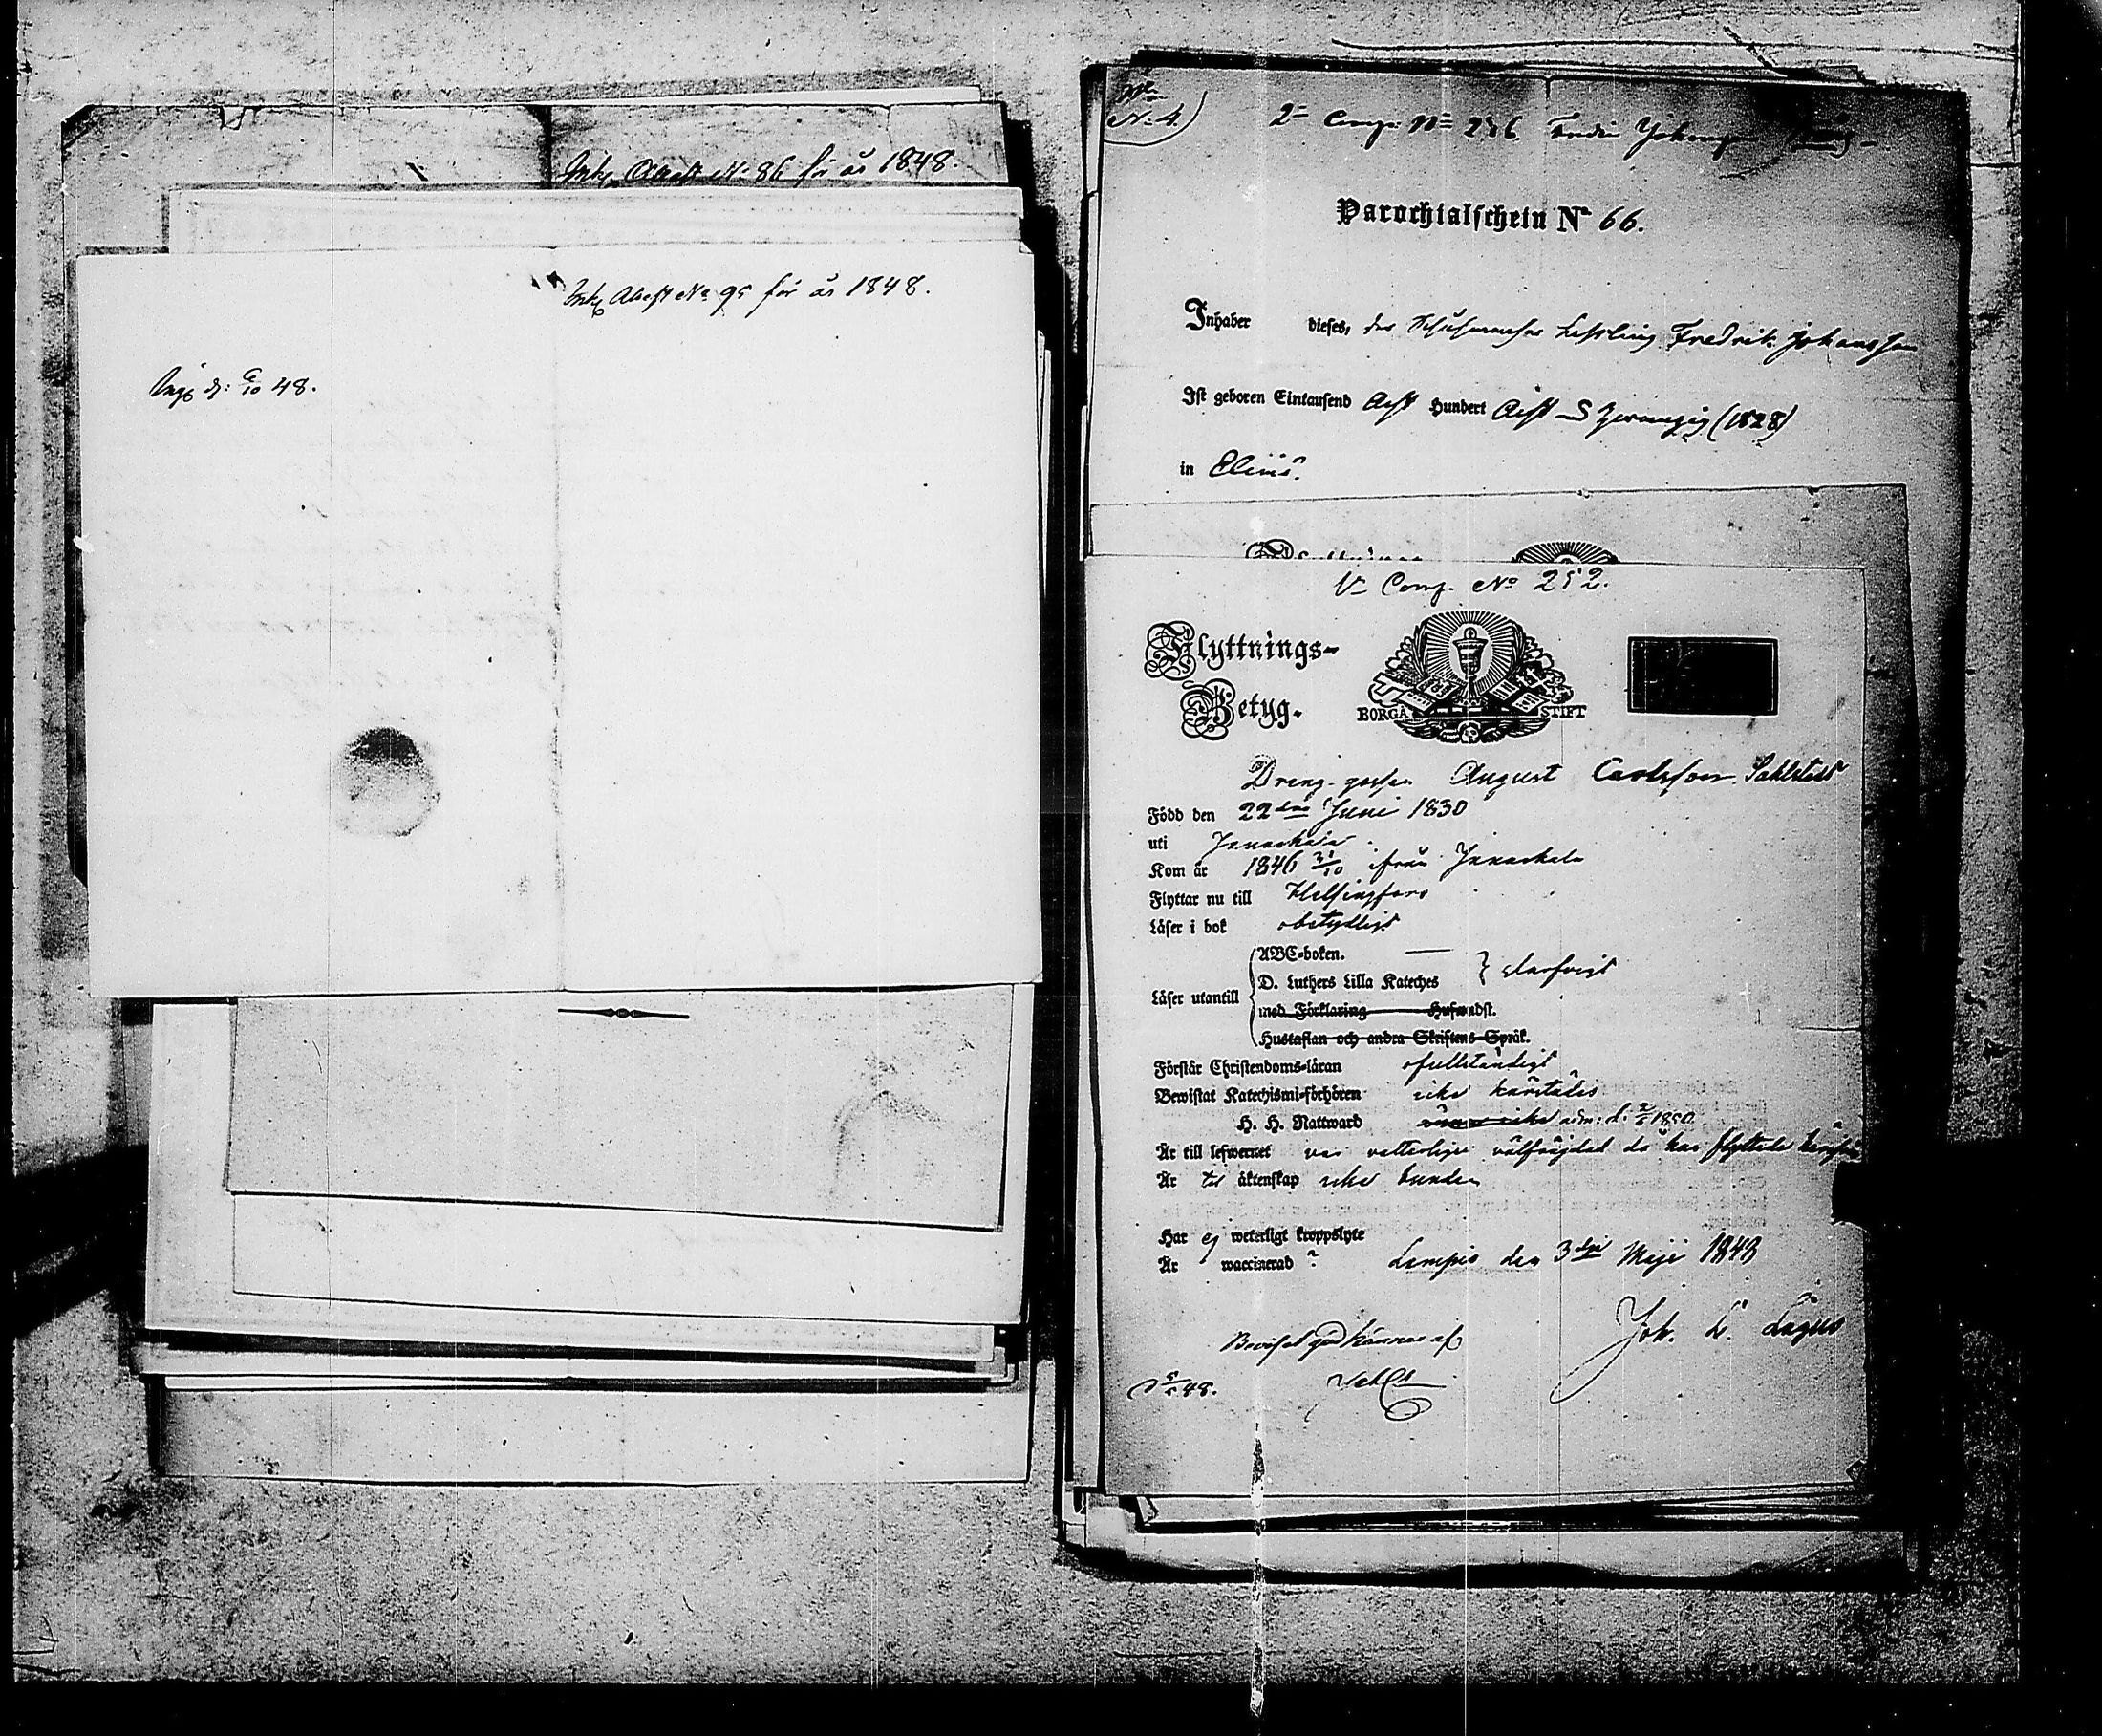 Ink. Attest No 86 för år 1848.
Ink. Attest No 95 för år 1848.
48.
No 4.
2 Comp. No 236
Parochialschein No 66.
Inhaber dieses, der Schuhmacher Lehrling Fredrik Johansson
Ist geboren Eintausend Acht Hundert Acht Zwanzig (1828)
in
V Comp. No 252.
Flyttnings-
Betyg.
BORGÅ STIFT
Dreng gossen August Carlsson Sahlstedt
Född den 22dra Juni 1830
uti Janackala
Kom år 1846 31/10 ifrån Janackala
Flyttar nu till Helsingfors
Läser i bok obetydligt
ABC-boken.
D. Luthers Lilla Kateches
Läser utantill
med Förklaring Hufwudst.
Hustaflan och andra Skriftens Språk.
Förstår Christendoms-läran ofullständigt
Bewistat Katechismi-förhören icke härstädes
H. H. Nattward adm: d. 1850
Är till lefwernet välfräjdad då han flyttade
Är till äktenskap icke bunden
Har ej weterligt kroppslyte
Är waccinerad ? Lampis den 3dje Maji 1848
Joh. L. Lagus
Beviset godkännes af
48.